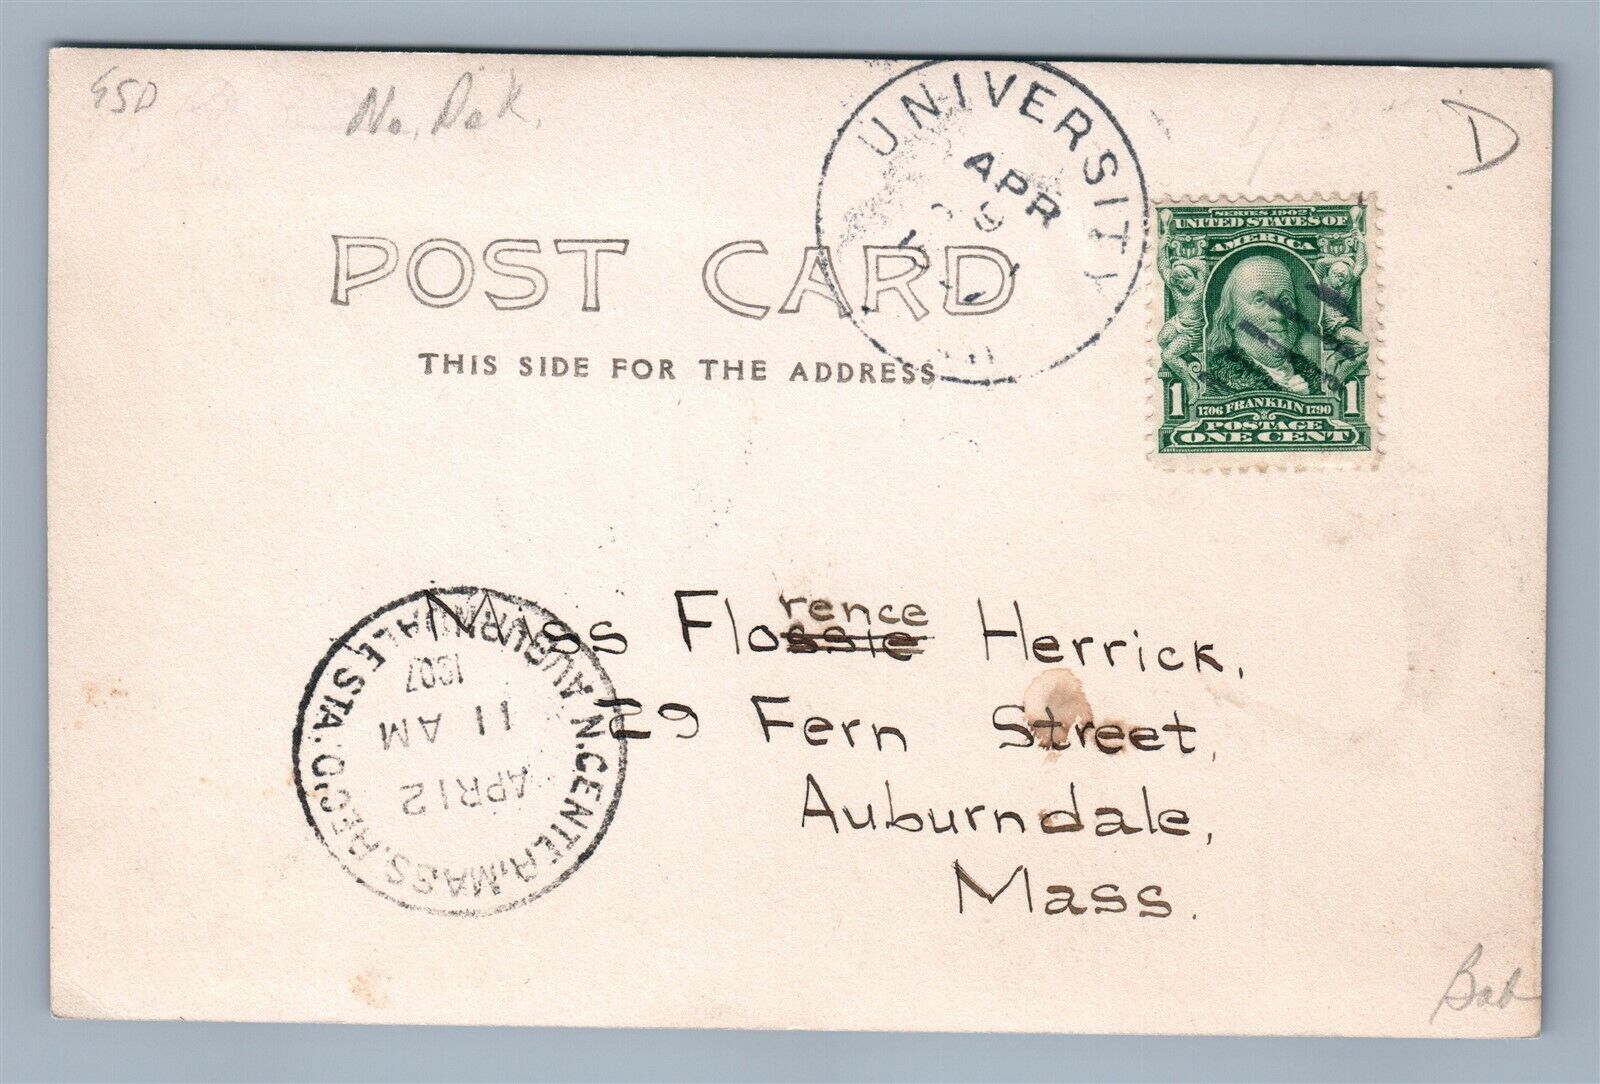 45D
No. Dak.
D
UNIVERSITY
APR
9
POST CARD
THIS SIDE FOR THE ADDRESS
SERIES 1902
UNITED STATES OF
AMERICA
1 1
1706 FRANKLIN 1790
POSTAGE
ONE CENT
Miss Flossie Herrick,
rence
29 Fern Street,
Auburndale,
Mass.
N. CENTER, MASS. REC'D.
AUBURNDALE STA.
APR 12
11 AM
1907
Bab